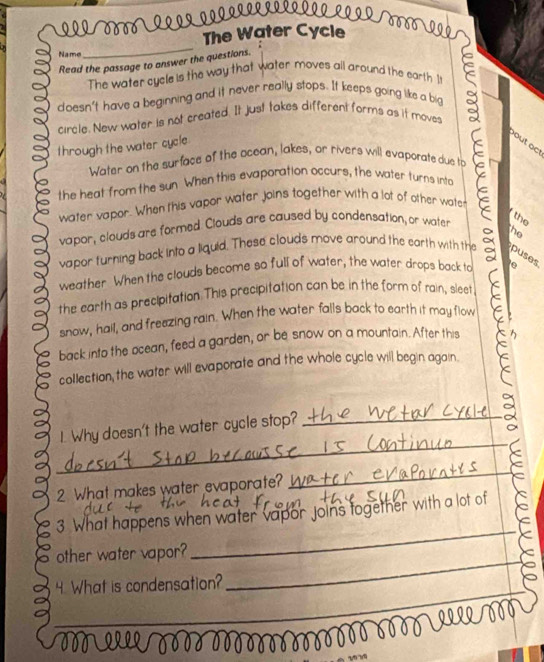 The Water Cycle
Name
Read the passage to answer the questions.
The water cycle is the way that water moves all around the earth. It
doesn't have a beginning and it never really stops. It keeps going like a big
circle. New water is not created. It just takes different forms as it moves
through the water cycle
Water on the surface of the ocean, lakes, or rivers will evaporate due to
the heat from the sun. When this evaporation occurs, the water turns into
water vapor. When this vapor water joins together with a lot of other water
vapor, clouds are formed. Clouds are caused by condensation, or water
vapor turning back into a liquid. These clouds move around the earth with the
weather. When the clouds become so full of water, the water drops back to
the earth as precipitation. This precipitation can be in the form of rain, sleet,
snow, hail, and freezing rain. When the water falls back to earth it may flow
back into the ocean, feed a garden, or be snow on a mountain. After this
collection, the water will evaporate and the whole cycle will begin again.
1. Why doesn't the water cycle stop? the wetar cycle
doesn't stop becousse is continuo
2. What makes water evaporate? water evaporates
due to the heat from the sun
3. What happens when water vapor joins together with a lot of
other water vapor?
4. What is condensation?
bout oct
the
the
puses,
e